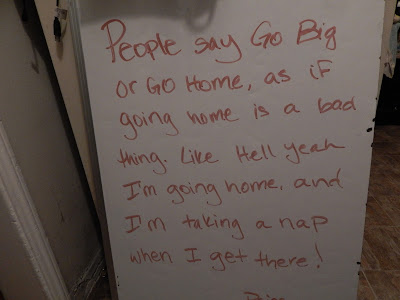 People say Go Big
or Go Home, as if
going home is a bad
thing. Like Hell yeah
I'm going home, and
I'm taking a nap
when I get there!